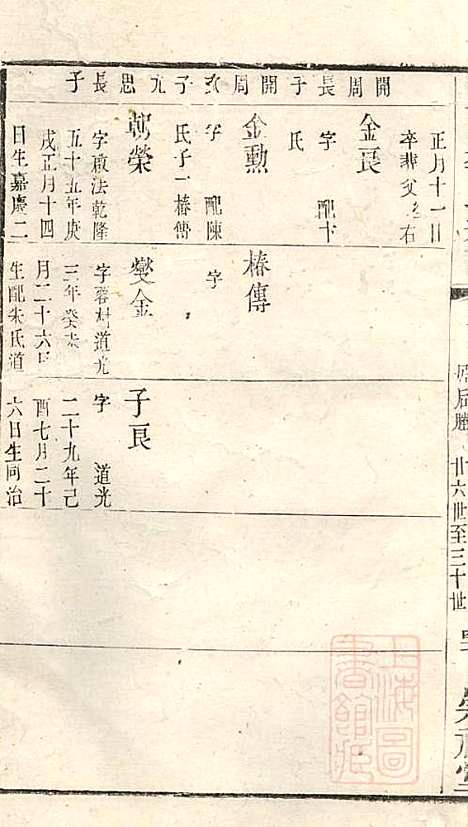 開周長子
開周次子
九思長子
正月十一日
卒葬父之右
金長
字 配卞
氏
金勲
字 配陳
氏子一椿傳
朝榮
字啟法乾隆
五十五年庚
戌正月十四
日生嘉慶二
椿傳
字
燮金
字蓉村道光
三年癸未
月二十六日
生配朱氏道
子良
字 道光
二十九年己
酉七月二十
六日生同治
廿六世至三十世
上海圖
書館藏